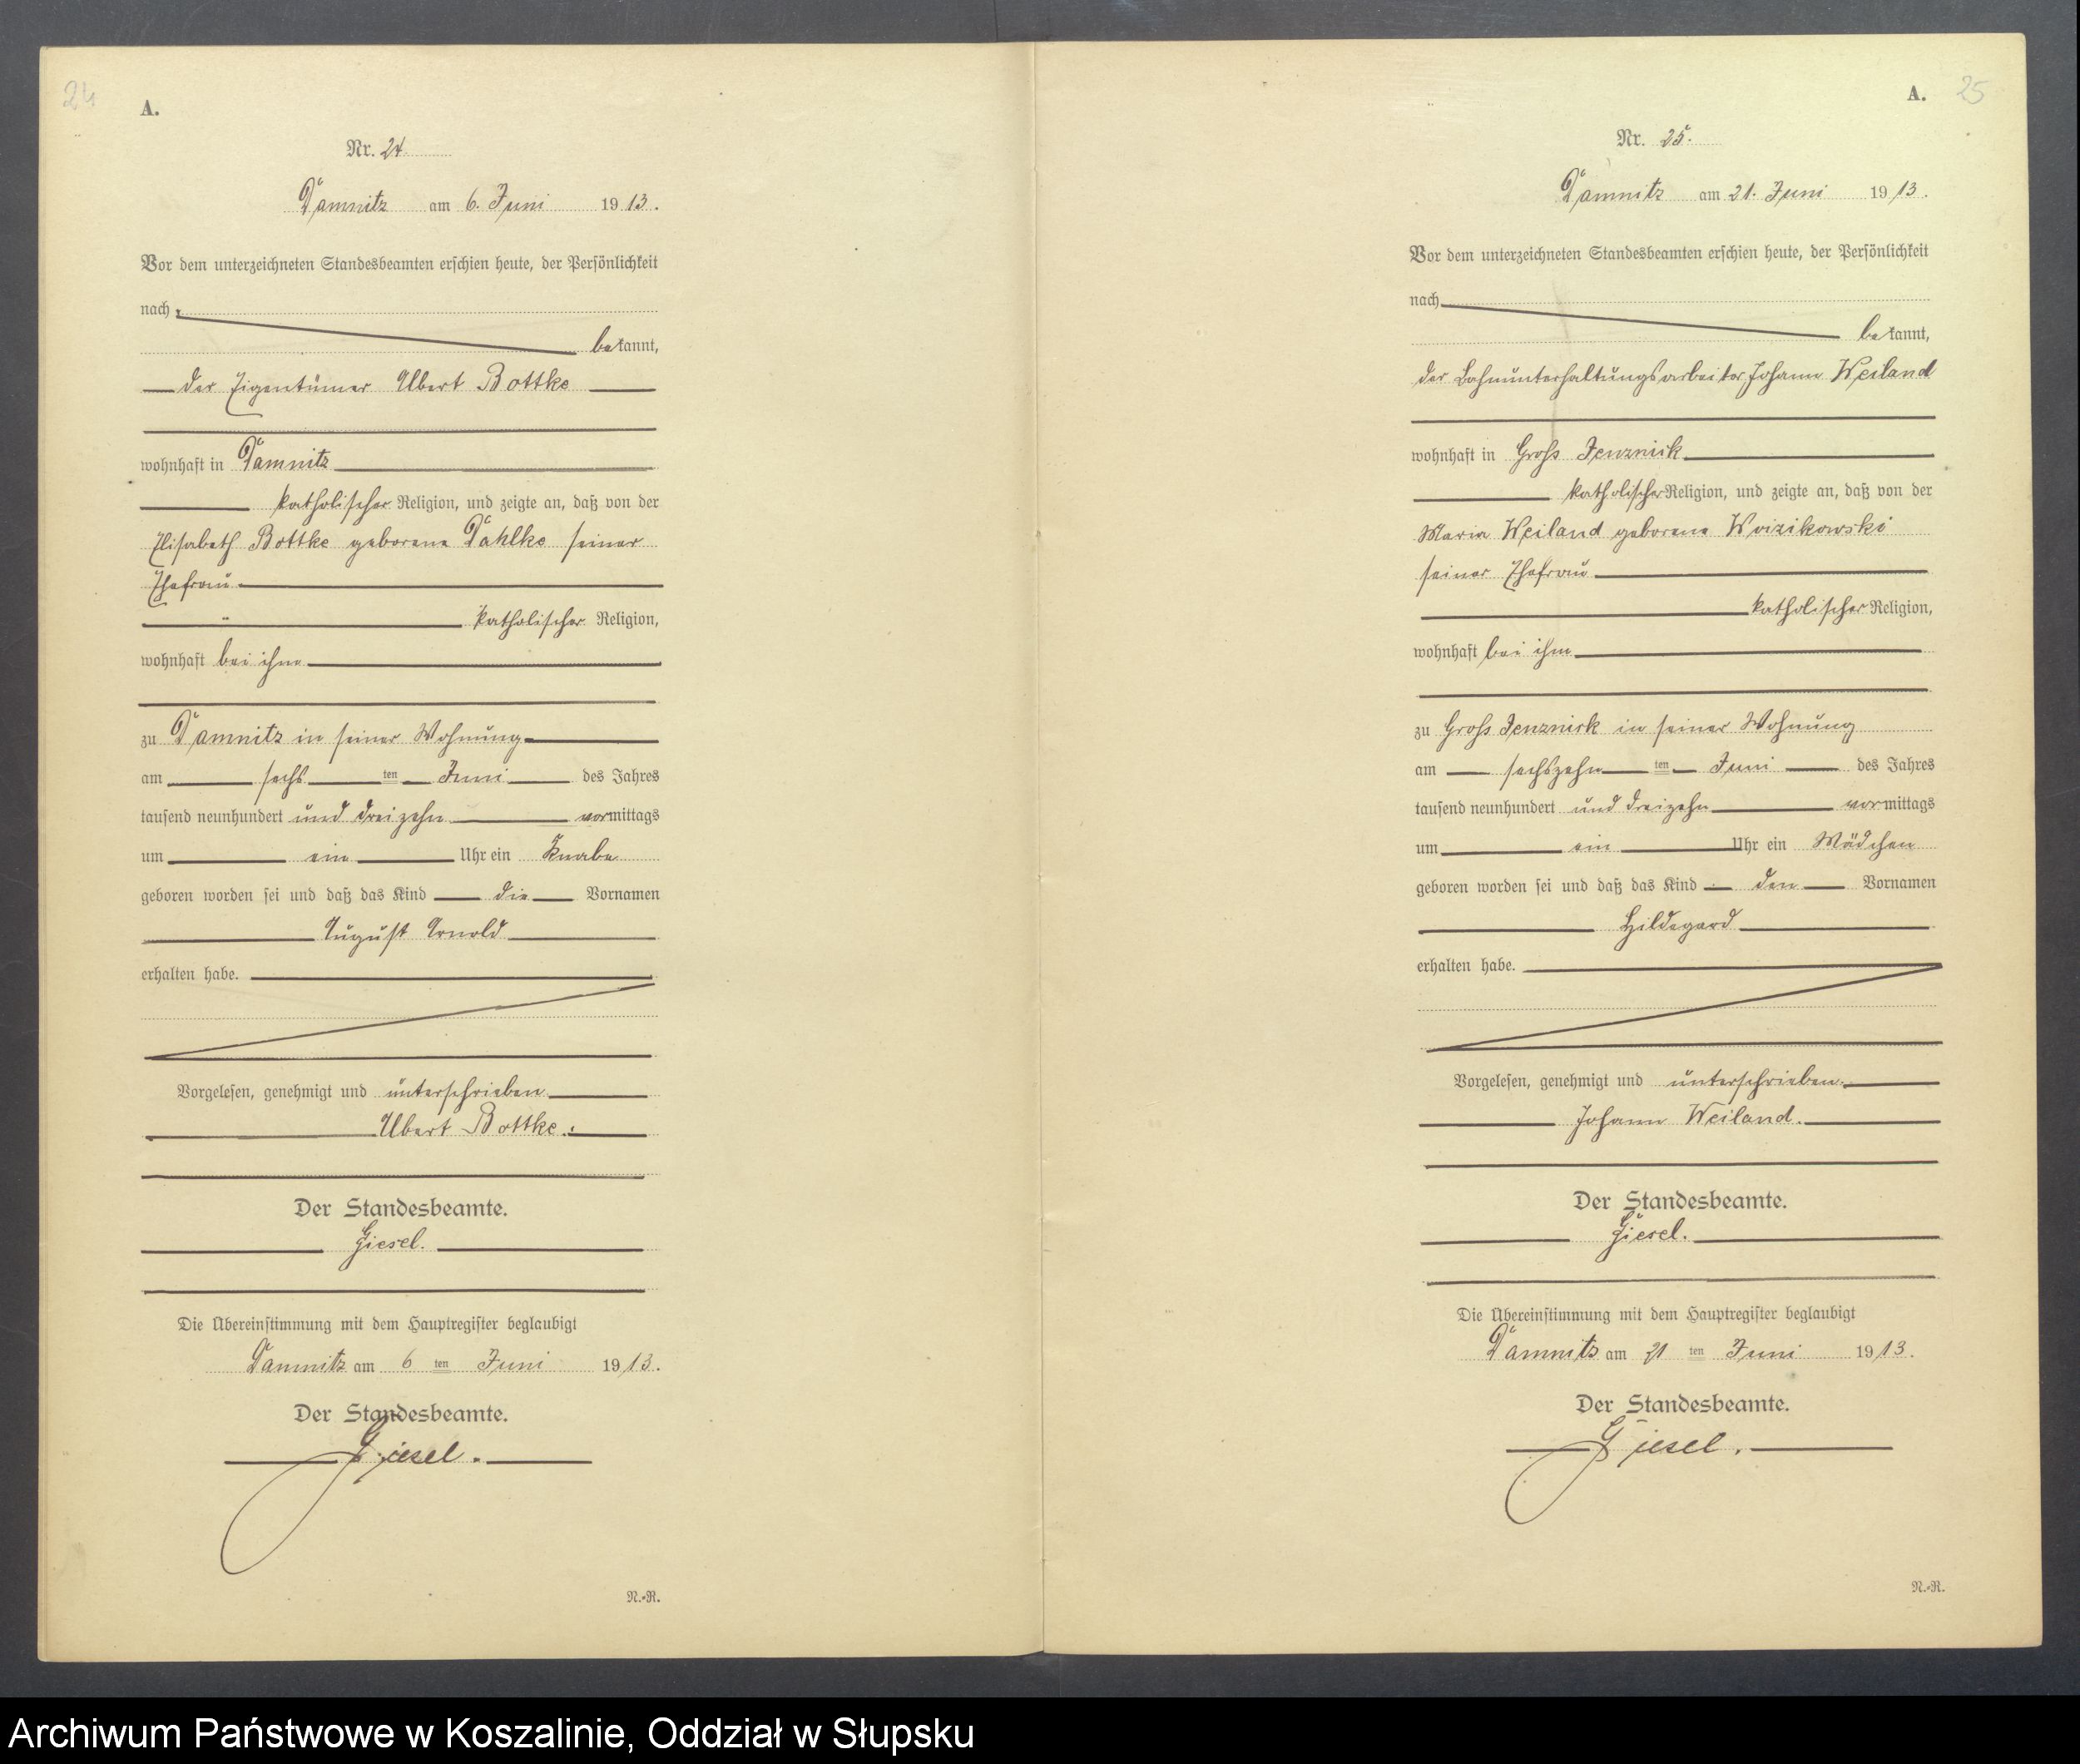 24
A.
Nr. 24
Damnitz am 6. Juni 1913.
Vor dem unterzeichneten Standesbeamten erschien heute, der Persönlichkeit
nach
bekannt,
der Eigentümer Albert Bottke
wohnhaft in Damnitz
katholischer Religion, und zeigte an, daß von der
Elisabeth Bottke geborene Dahlke seiner
Ehefrau
katholischer Religion,
wohnhaft bei ihm
zu Damnitz in seiner Wohnung
am sechs ten Juni des Jahres
tausend neunhundert und dreizehn vormittags
um ein Uhr ein Knabe
geboren worden sei und daß das Kind die Vornamen
August Arnold
erhalten habe.
Vorgelesen, genehmigt und unterschrieben
Albert Bottke.
Der Standesbeamte.
Giesel.
Die Übereinstimmung mit dem Hauptregister beglaubigt
Damnitz am 6 ten Juni 1913.
Der Standesbeamte.
Giesel.
N.-R.
A. 25
Nr. 25.
Damnitz am 21. Juni 1913.
Vor dem unterzeichneten Standesbeamten erschien heute, der Persönlichkeit
nach
bekannt,
der Bahnunterhaltungsarbeiter Johann Weiland
wohnhaft in Groß Jenznick
katholischer Religion, und zeigte an, daß von der
Maria Weiland geborene Woizikowski
seiner Ehefrau
katholischer Religion,
wohnhaft bei ihm
zu Groß Jenznick in seiner Wohnung
am sechszehn ten Juni des Jahres
tausend neunhundert und dreizehn vormittags
um ein Uhr ein Mädchen
geboren worden sei und daß das Kind den Vornamen
Hildegard
erhalten habe.
Vorgelesen, genehmigt und unterschrieben.
Johann Weiland.
Der Standesbeamte.
Giesel.
Die Übereinstimmung mit dem Hauptregister beglaubigt
Damnitz am 21 ten Juni 1913.
Der Standesbeamte.
Giesel.
N.-R.
Archiwum Państwowe w Koszalinie, Oddział w Słupsku